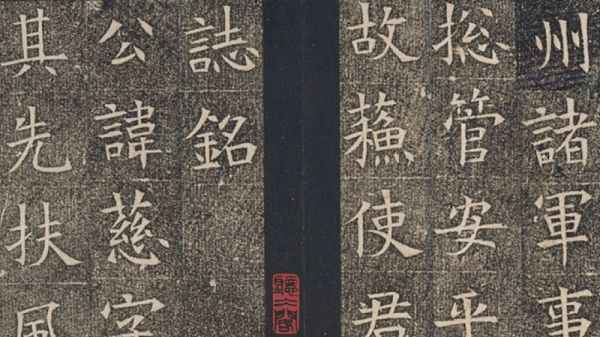 州諸軍事
捴管安平
故蘓使君
誌銘
公諱慈字
其先扶風